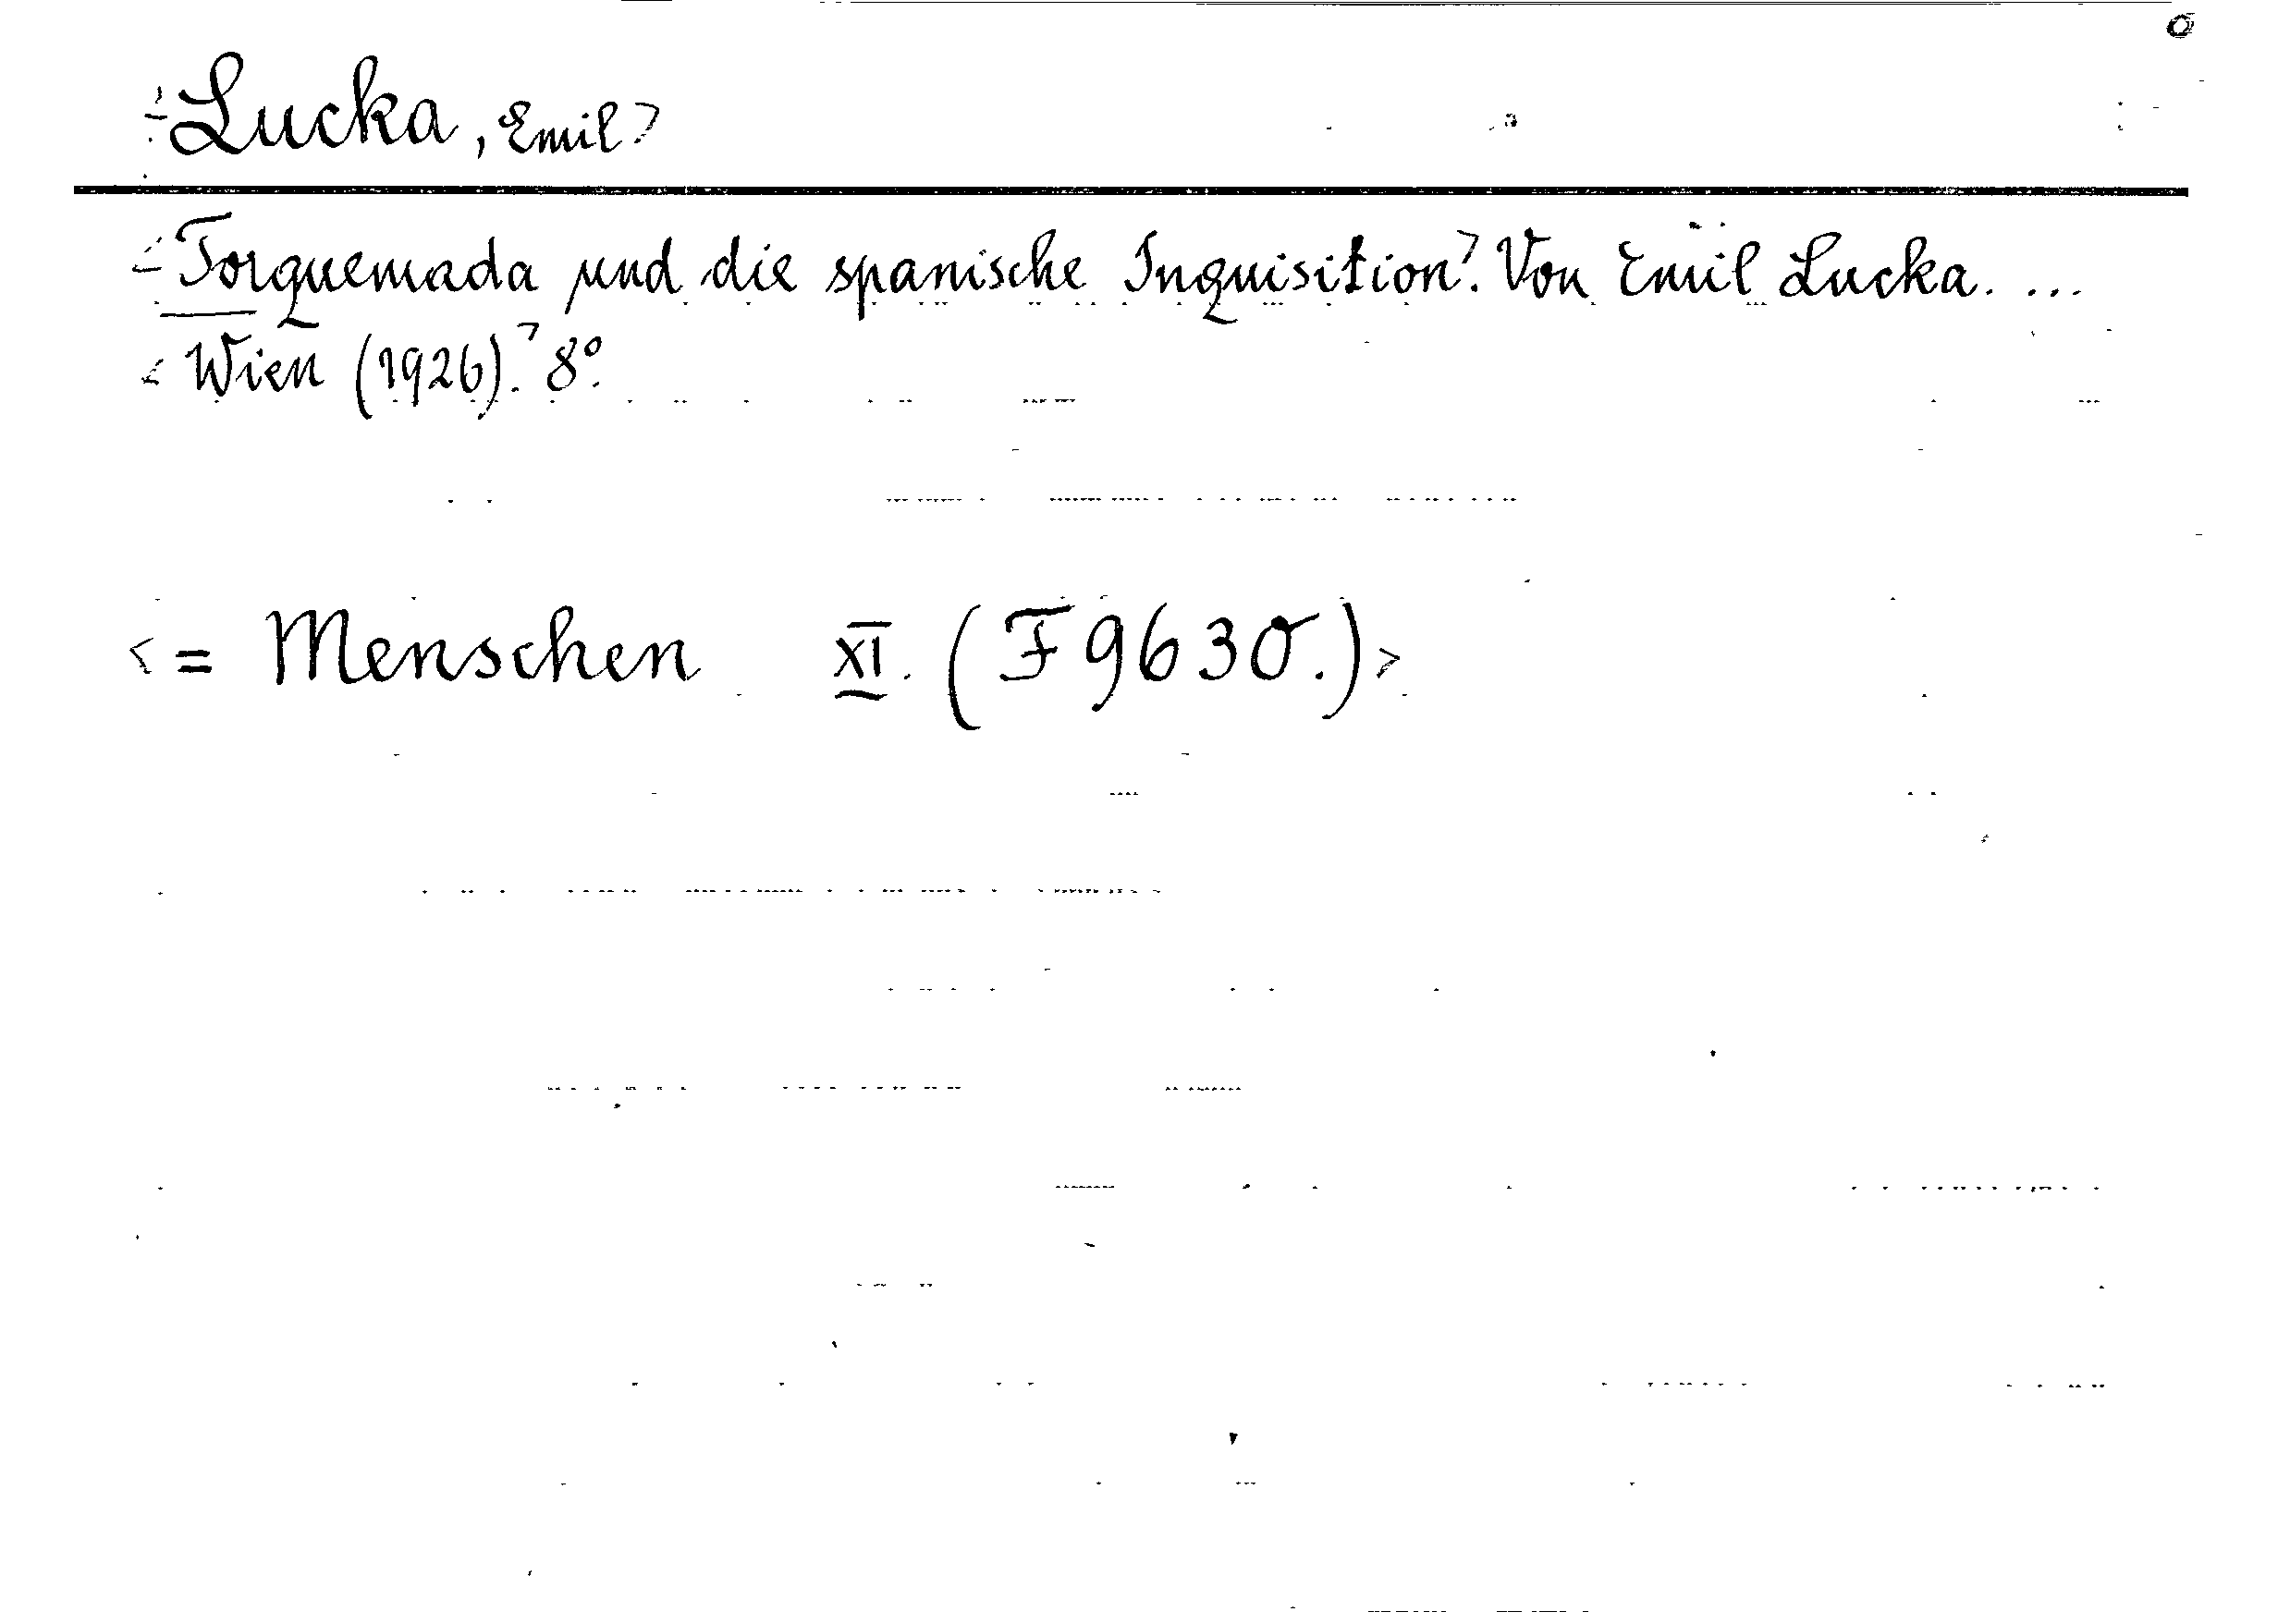 <Lucka, Emil>
<Torquemada und die spanische Inquisition>. Von Emil Lucka. ...
<Wien (1926).> 8°.
<= Menschen XI. (F 9630.)>